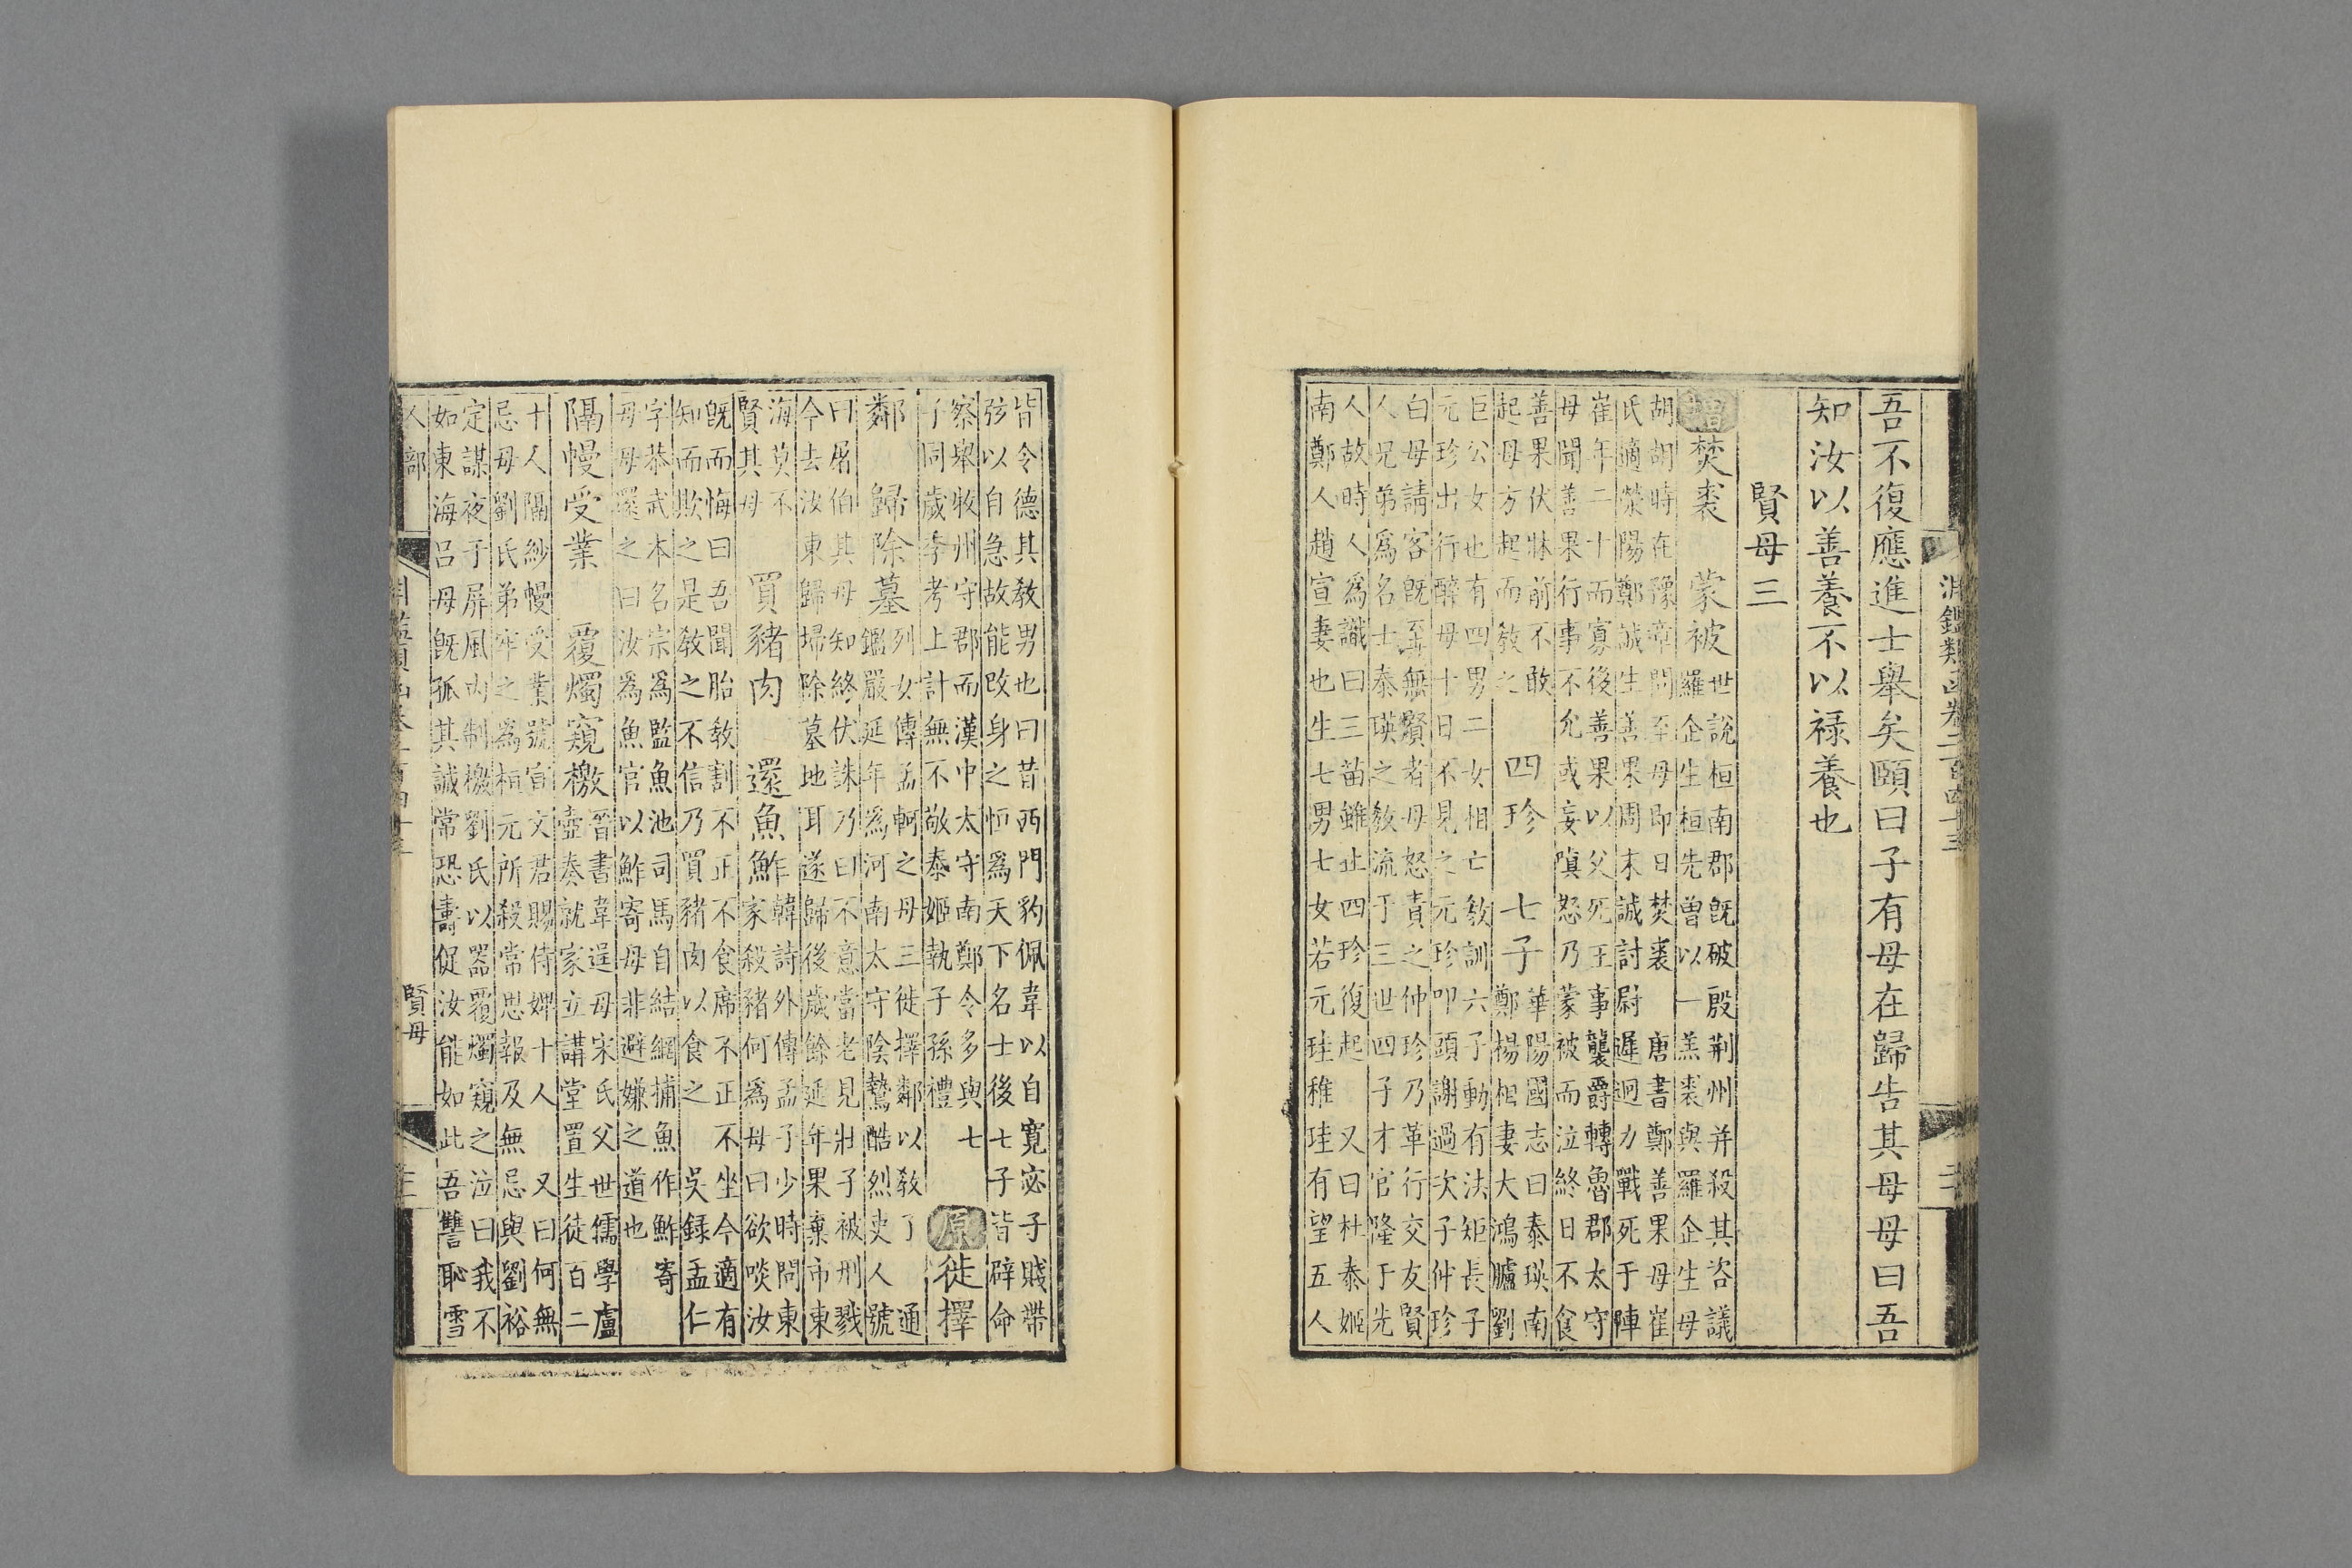 淵鑑類函卷二百四十三
二
吾不復應進士舉矣頤曰子有母在歸告其母母曰吾
知汝以善養不以禄養也
賢母三
增焚裘　蒙被
世說桓南郡旣破殷荆州并殺其咨議
羅企生桓先曾以一羔裘與羅企生母
胡胡時在豫章問至母即日焚裘　唐書鄭善果母崔
氏適滎陽鄭誠生善果周末誠討尉遲迥力戰死于陣
崔年二十而寡後善果以父死王事襲爵轉魯郡太守
母聞善果行事不允或妄嗔怒乃蒙被而泣終日不食
善果伏牀前不敢
起母方起而敎之
四珍　七子
華陽國志曰泰瑛南
鄭楊相妻大鴻臚劉
巨公女也有四男二女相亡敎訓六子動有法矩長子
元珍出行醉母十日不見之元珍叩頭謝過次子仲珍
白母請客旣至無賢者母怒責之仲珍乃革行交友賢
人兄弟爲名士泰瑛之敎流于三世四子才官隆于先
人故時人爲讖曰三苗雖止四珍復起　又曰杜泰姬
南鄭人趙宣妻也生七男七女若元珪稚珪有望五人
皆令德其敎男也曰昔西門豹佩韋以自寬宓子賤帶
弦以自急故能改身之恒爲天下名士後七子皆辟命
察舉牧州守郡而漢中太守南鄭令多與七
子同歲季考上計無不敬泰姬執子孫禮
原徙擇
鄰　歸除墓
列女傳孟軻之母三徙擇鄰以敎了　通
鑑嚴延年爲河南太守陰鷙酷烈吏人號
曰屠伯其母知終伏誅乃曰不意當老見壯子被刑戮
今去汝東歸埽除墓地耳遂歸後歲餘延年果棄市東
海莫不
賢其母
買豬肉　還魚鮓
韓詩外傳孟子少時問東
家殺豬何爲母曰欲啖汝
旣而悔曰吾聞胎敎割不正不食席不正不坐今適有
知而欺之是敎之不信乃買豬肉以食之　吳録孟仁
字恭武本名宗爲監魚池司馬自結網捕魚作鮓寄
母母還之曰汝爲魚官以鮓寄母非避嫌之道也
隔幔受業　覆燭窺檄
晉書韋逞母宋氏父世儒學盧
壺奏就家立講堂置生徒百二
十人隔紗幔受業號宣文君賜侍婢十人　又曰何無
忌母劉氏弟牢之爲桓元所殺常思報及無忌與劉裕
定謀夜于屏風内制檄劉氏以器覆燭窺之泣曰我不
如東海呂母旣孤其誠常恐壽促汝能如此吾讐恥雪
人部
賢母